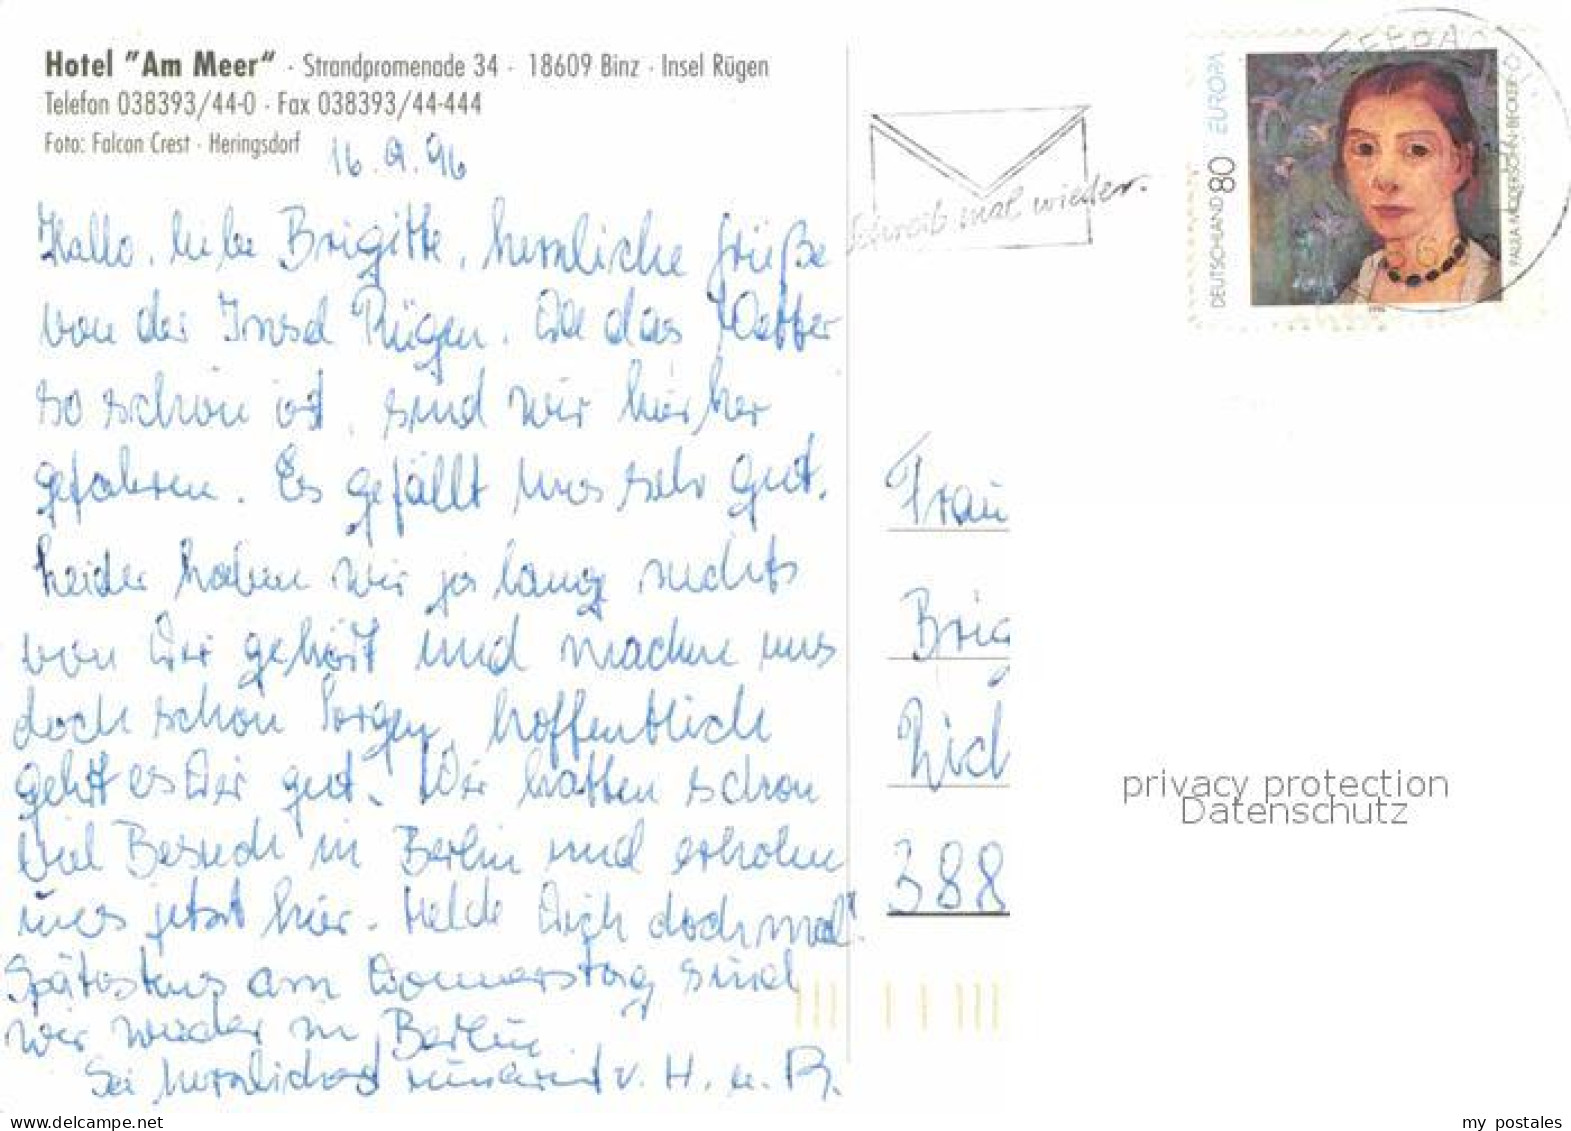 Hotel "Am Meer" · Strandpromenade 34 · 18609 Binz · Insel Rügen
Telefon 038393/44-0 · Fax 038393/44-444
Foto: Falcon Crest · Heringsdorf
16.9.96
Hallo, liebe Brigitte, herzliche Grüße
von der Insel Rügen. Da das Wetter
so schön ist, sind wir hierher
gefahren. Es gefällt uns sehr gut.
Leider haben wir ja lange nichts
von Dir gehört und machen uns
doch schon Sorgen, hoffentlich
geht es Dir gut. Wir hatten schon
viel Besuch in Berlin und erholen
uns jetzt hier. Melde Dich doch mal!
Spätestens am Donnerstag sind
wir wieder in Berlin
Sei herzlichst umarmt v. H. u. R.
Schreib mal wieder.
DEUTSCHLAND 80 EUROPA
PAULA MODERSOHN-BECKER
Frau
Brig
Rich
388
privacy protection
Datenschutz
delcampe.net
my_postales